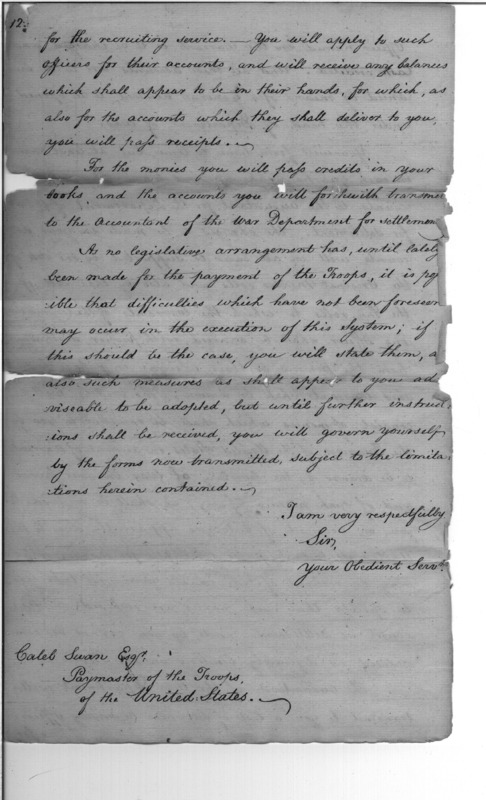 12.
for the recruiting service. — You will apply to such
officers for their accounts, and will receive any balances
which shall appear to be in their hands, for which, as
also for the accounts which they shall deliver to you,
you will pass receipts. —
For the monies you will pass credits in your
books, and the accounts you will forthwith transm
to the Accountant of the War Department for settlement
As no legislative arrangement has, until lately
been made for the payment of the Troops, it is poss
ible that difficulties which have not been foreseen
may occur in the execution of this System; if
this should be the case, you will state them, a
also such measures as shall appear to you ad
viseable to be adopted, but until further instruct
ions shall be received, you will govern yourself
by the forms now transmitted, subject to the limita
tions herein contained. —
I am very respectfully
Sir,
Your Obedient Servt.
Caleb Swan Esqr.
Paymaster of the Troops,
of the United States. —